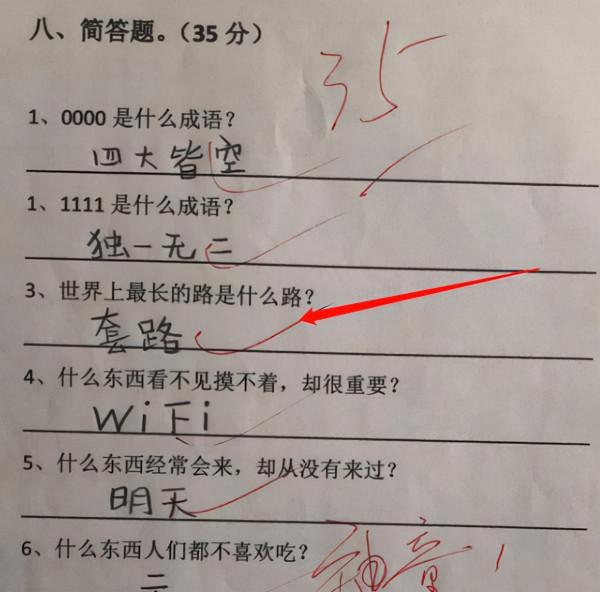 八、简答题。（35 分）
35
1、0000 是什么成语？
四大皆空
1、1111 是什么成语？
独一无二
3、世界上最长的路是什么路？
套路
4、什么东西看不见摸不着，却很重要？
WiFi
5、什么东西经常会来，却从没有来过？
明天
6、什么东西人们都不喜欢吃？
神童！